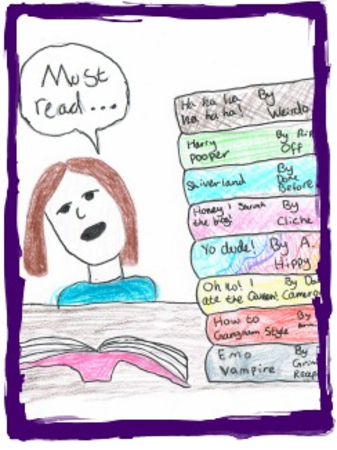 Must
read...
Ha ha ha By
ha ha ha! Weirdo
Harry By Rip
pooper Off
Shiverland By
Done
Before
Honey I Shrank By
the bog! Cliche
Yo dude! By A.
Hippy
Oh no! I By
ate the Queen! Cameron
How to By
Gangnam Style
Emo By
Vampire Grim
Reaper